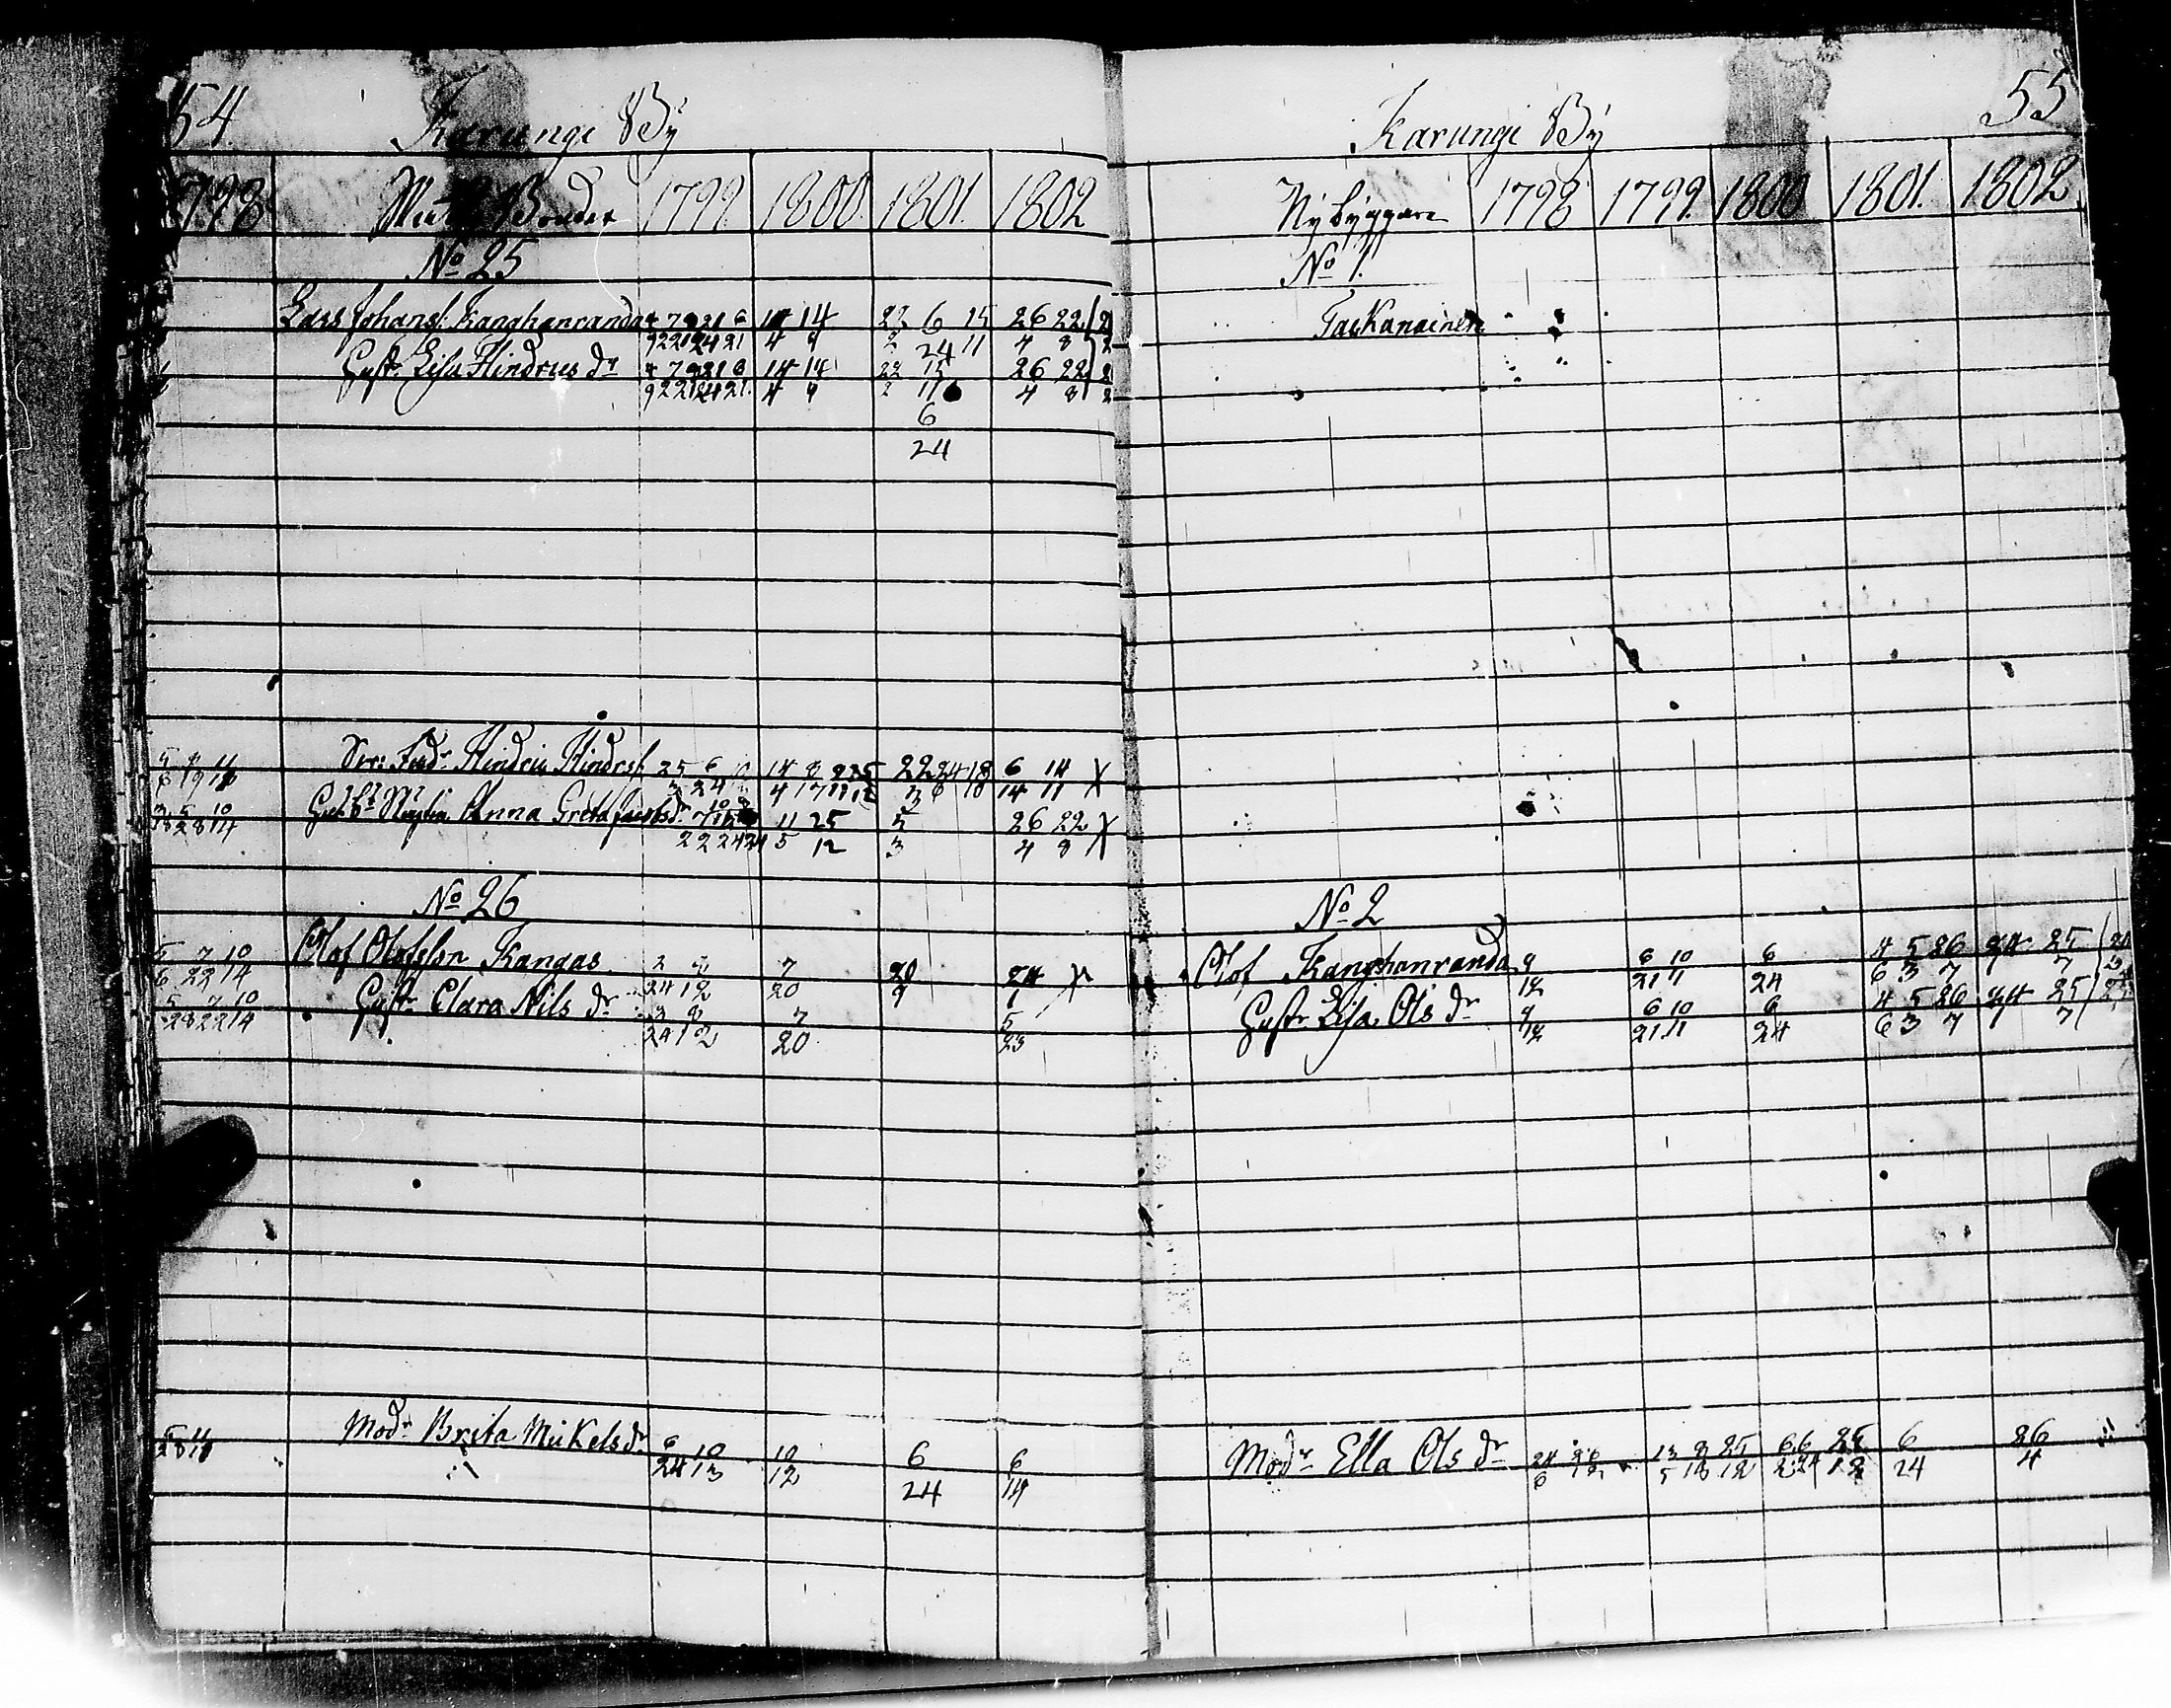 54.
Karungi Bÿ
1798 Bönder 1799 1800 1801. 1802
No 25
Lars Johanss. Kanghanranda 4 7 9 21 6 14 14 22 6 15 26 22
9 22 12 24 21 4 9 2 24 11 4 8 2
Hust. Lisa Hindrics dr 4 7 9 21 6 14 14 22 15 26 22
9 22 12 24 21 4 9 2 11 4 8 2
6
24
Hindric Hindrss. 25 6 14 8 22 24 18 6 14
14 11
Anna Greta Jacobsdr 11 25 5 26 22
28 14 22 24 24 5 12 3 4 8
No 26
5 7 10 Olof Olofsson Kangas 2 7 20 24
6 22 14 24 12 20 9 1
5 7 10 Hust. Clara Nils dr 3 8 7 5
28 22 14 24 12 20 23
Modr Brita Mickelsdr 6 10 10 6 6
28 11 24 13 12 24 14
55
Karungi Bÿ
Nÿbÿggare 1798 1799. 1800 1801. 1802
No 1.
Taskanainen
No 2
Olof Kanghanranda 9 6 10 6 4 5 26 24 25
12 21 11 24 6 3 7 7
Hustr Lisa Ols dr 9 6 10 6 4 5 26 24 25
12 21 11 24 6 3 7 1 7
Modr Ella Ols dr 24 26 13 8 25 6 6 25 6 26
6 12 5 18 12 12 24 4